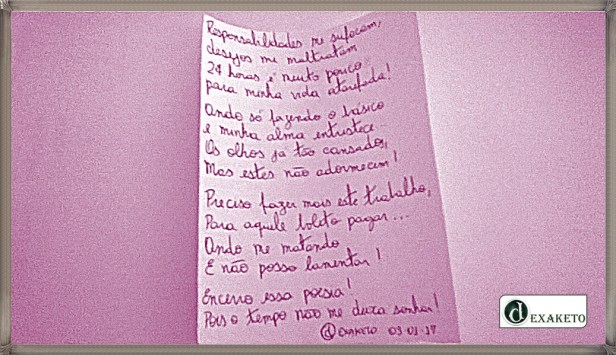 Responsabilidades me sufocam,
desejos me maltratam
24 horas é muito pouco
para minha vida atarefada!
Ando só fazendo o básico
e minha alma entristece...
Os olhos já tão cansados,
Mas estes não adormecem!
Preciso fazer mais este trabalho,
Para aquele boleto pagar...
Ando me matando
E não posso lamentar!
Encerro essa poesia!
Pois o tempo não me deixa sonhar!
@DEXAKETO 09-01-17
d EXAKETO